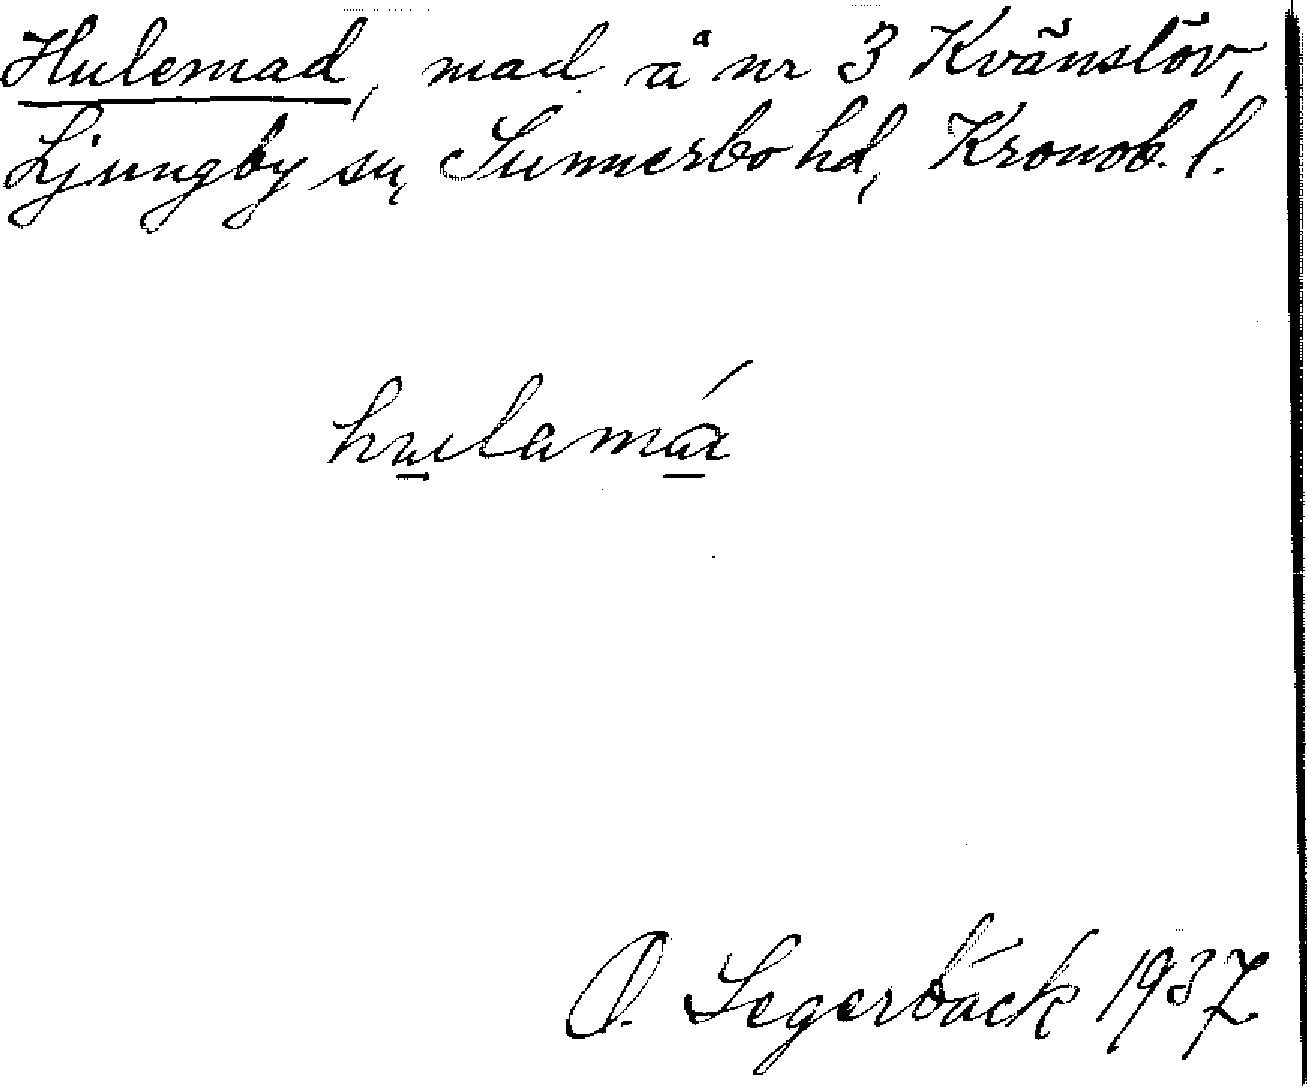 Hulemad, mad å nr 3 Kvänslöv,
Ljungby sn, Sunnerbo hd, Kronob. l.
hulamá
O. Segerbäck 1937